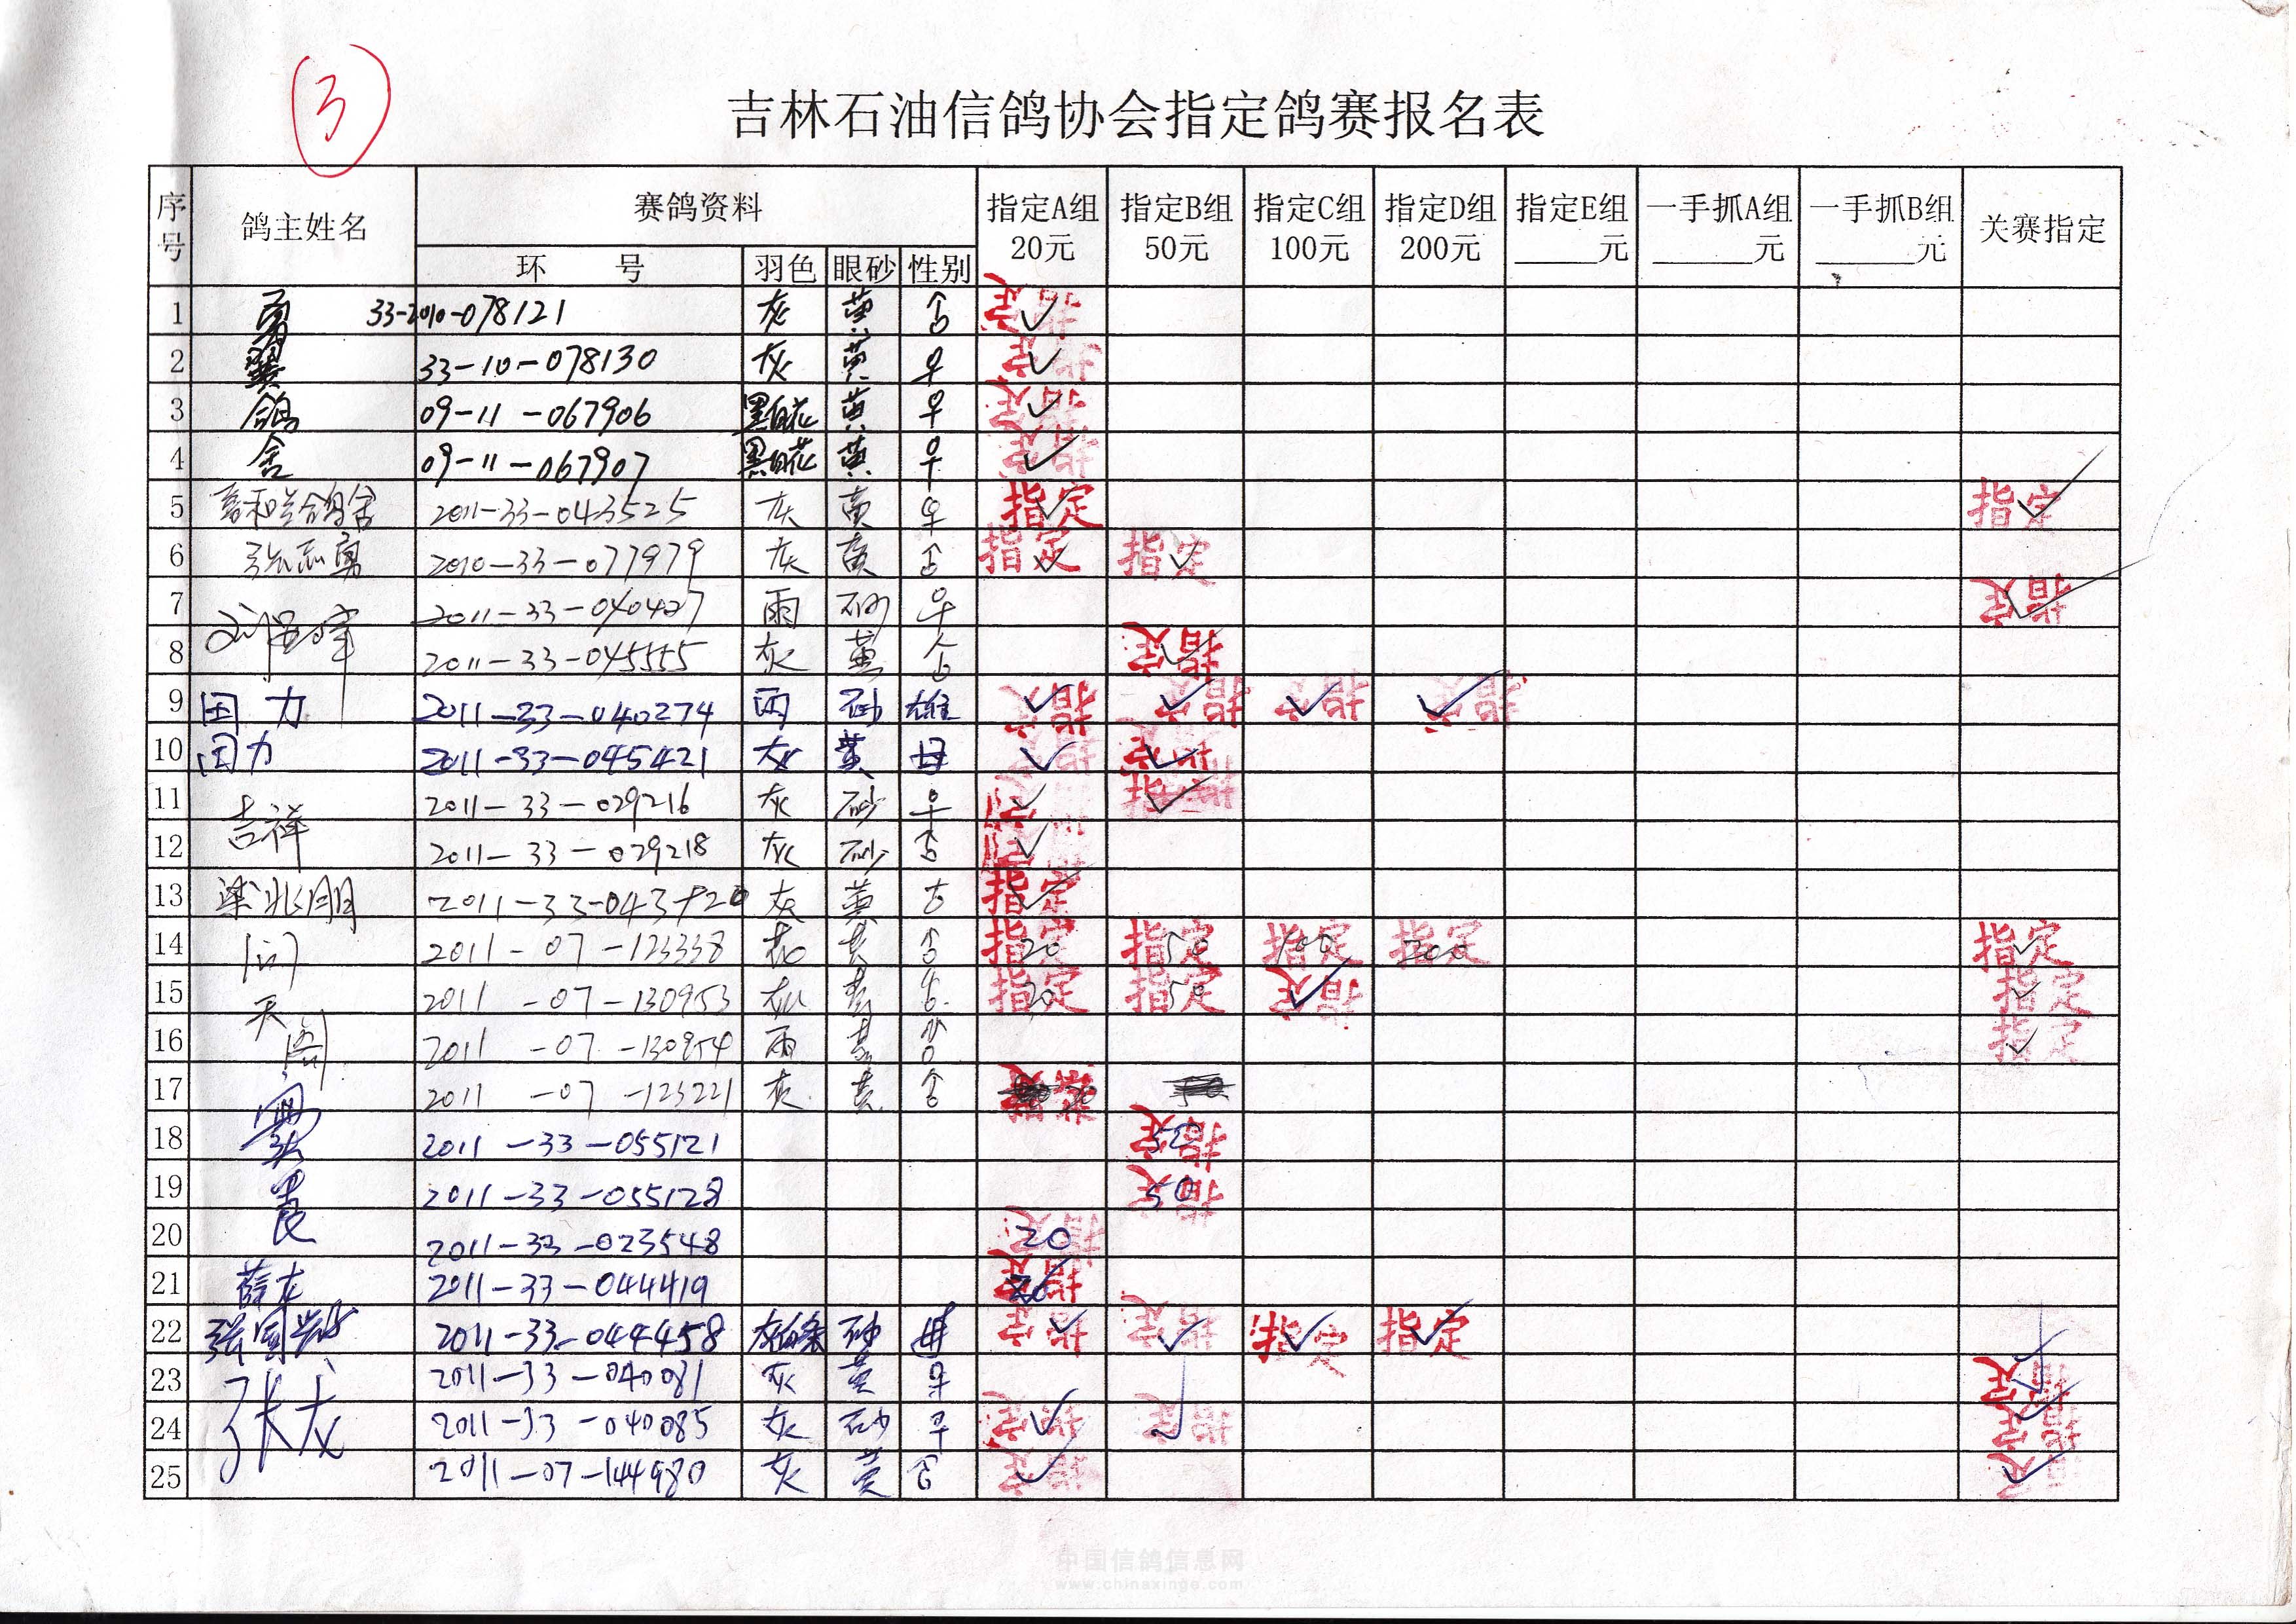 3
吉林石油信鸽协会指定鸽赛报名表
序号 鸽主姓名 赛鸽资料 指定A组 20元 指定B组 50元 指定C组 100元 指定D组 200元 指定E组 ______元 一手抓A组 ______元 一手抓B组 ______元 关赛指定
环 号 羽色 眼砂 性别
1 勇 33-2010-078121 灰 黄 ♂ 指定 ✓
2 翼 33-10-078130 灰 黄 ♀ 指定 ✓
3 鸽 09-11-067906 黑白花 黄 ♀ 指定 ✓
4 舍 09-11-067907 黑白花 黄 ♀ 指定 ✓
5 2011-33-043525 灰 黄 ♀ 指定 ✓ 指定 ✓
6 张志勇 2010-33-077979 灰 黄 ♂ 指定 ✓ 指定 ✓
7 2011-33-040427 雨 砂 ♀ 指定 ✓
8 2011-33-045555 灰 黄 ♂ 指定 ✓
9 田力 2011-33-040274 雨 砂 雄 指定 ✓ 指定 ✓ 指定 ✓ 指定 ✓
10 田力 2011-33-045421 灰 黄 母 指定 ✓ 指定 ✓
11 吉祥 2011-33-029216 灰 砂 ♀ 指定 ✓ 指定 ✓
12 2011-33-029218 灰 砂 ♂ 指定 ✓
13 梁兆明 灰 黄 ♂ 指定 ✓
14 2011-07-123338 黄 ♂ 指定 20 指定 50 指定 100 指定 200 指定 ✓
15 天 2011-07-130953 灰 黄 ♂ 指定 20 指定 50 指定 ✓ 指定 ✓
16 阁 2011-07-130954 雨 黄 ♂ 指定 ✓
17 2011-07-123221 灰 黄 ♂ 指定
18 2011-33-055121 指定 50
19 2011-33-055128 指定 50
20 2011-33-023548 指定 20
21 薛龙 2011-33-044419 指定 20
22 张国兴 2011-33-044458 灰白条 砂 指定 ✓ 指定 ✓ 指定 ✓ 指定 ✓
23 张龙 2011-33-040081 灰 黄 ♀ 指定 ✓
24 2011-33-040085 灰 砂 ♀ 指定 ✓ 指定 ✓ 指定 ✓
25 2011-07-144980 灰 黄 ♂ 指定 ✓ 指定 ✓
中国信鸽信息网
www.chinaxinge.com